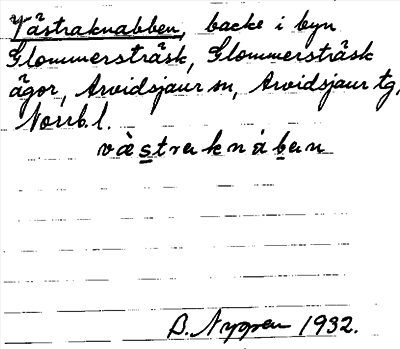 Västraknabben, backe i byn
Glommersträsk, Glommersträsk
ägor, Arvidsjaur sn, Arvidsjaur tg,
Norrb. l.
västraknáben
B. Nygren 1932.